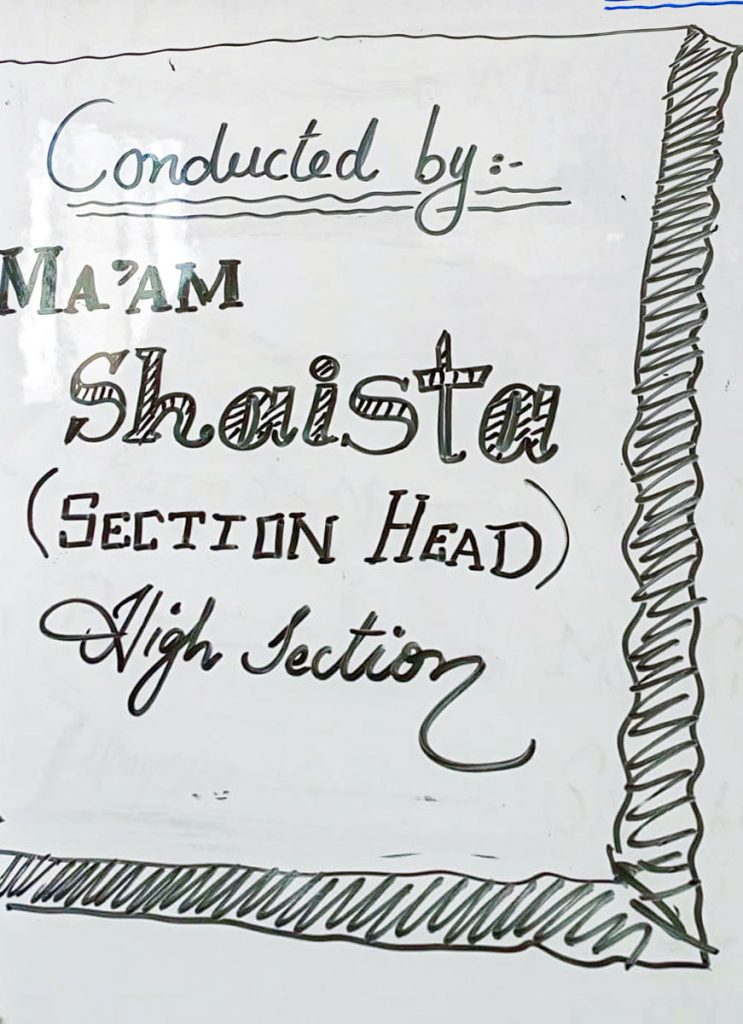 Conducted by:-
MA'AM
Shaista
(SECTION HEAD)
High Section